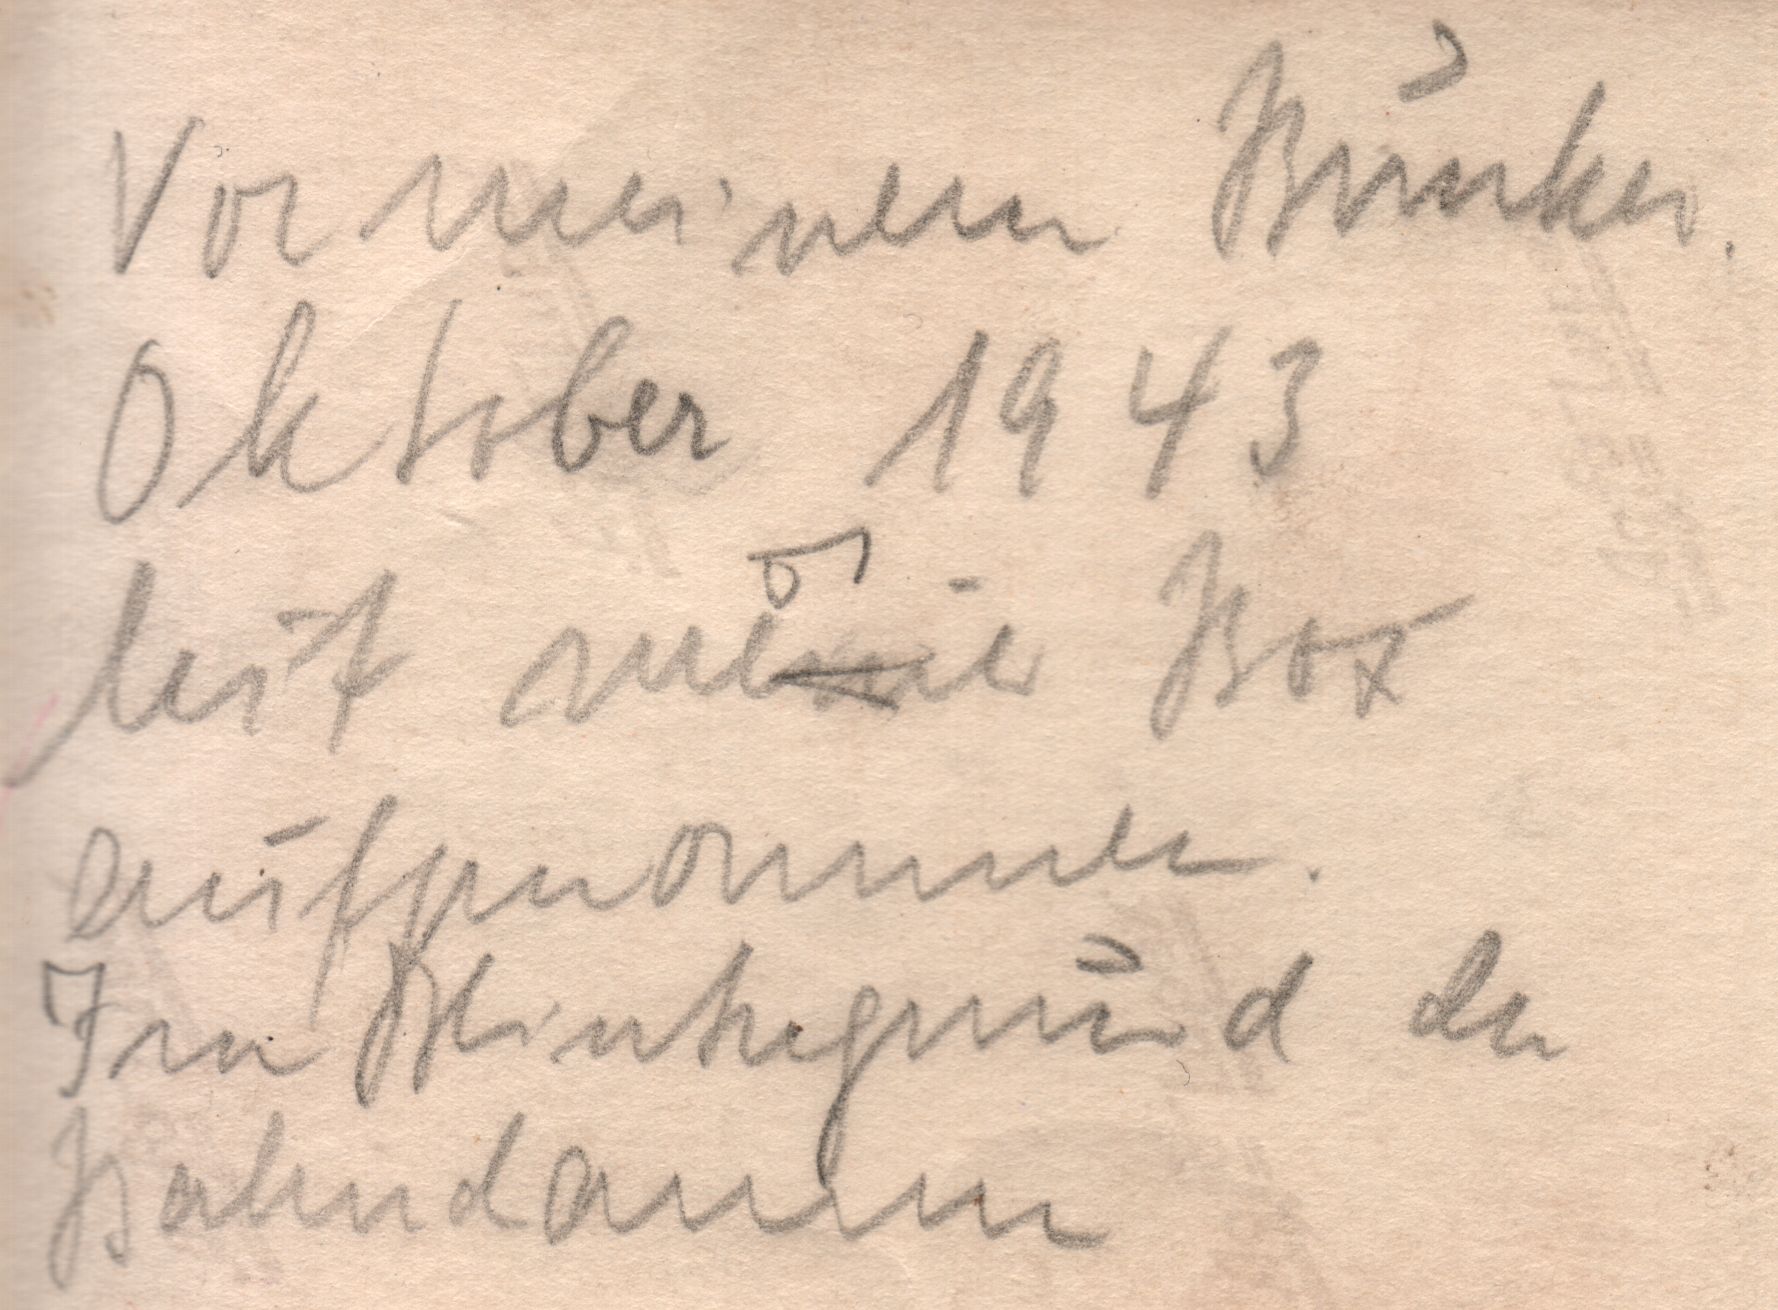 Vor meinem Bunker.
Oktober 1943
Mit meiner Box
aufgenommen.
Im Hintergrund der
Bahndamm